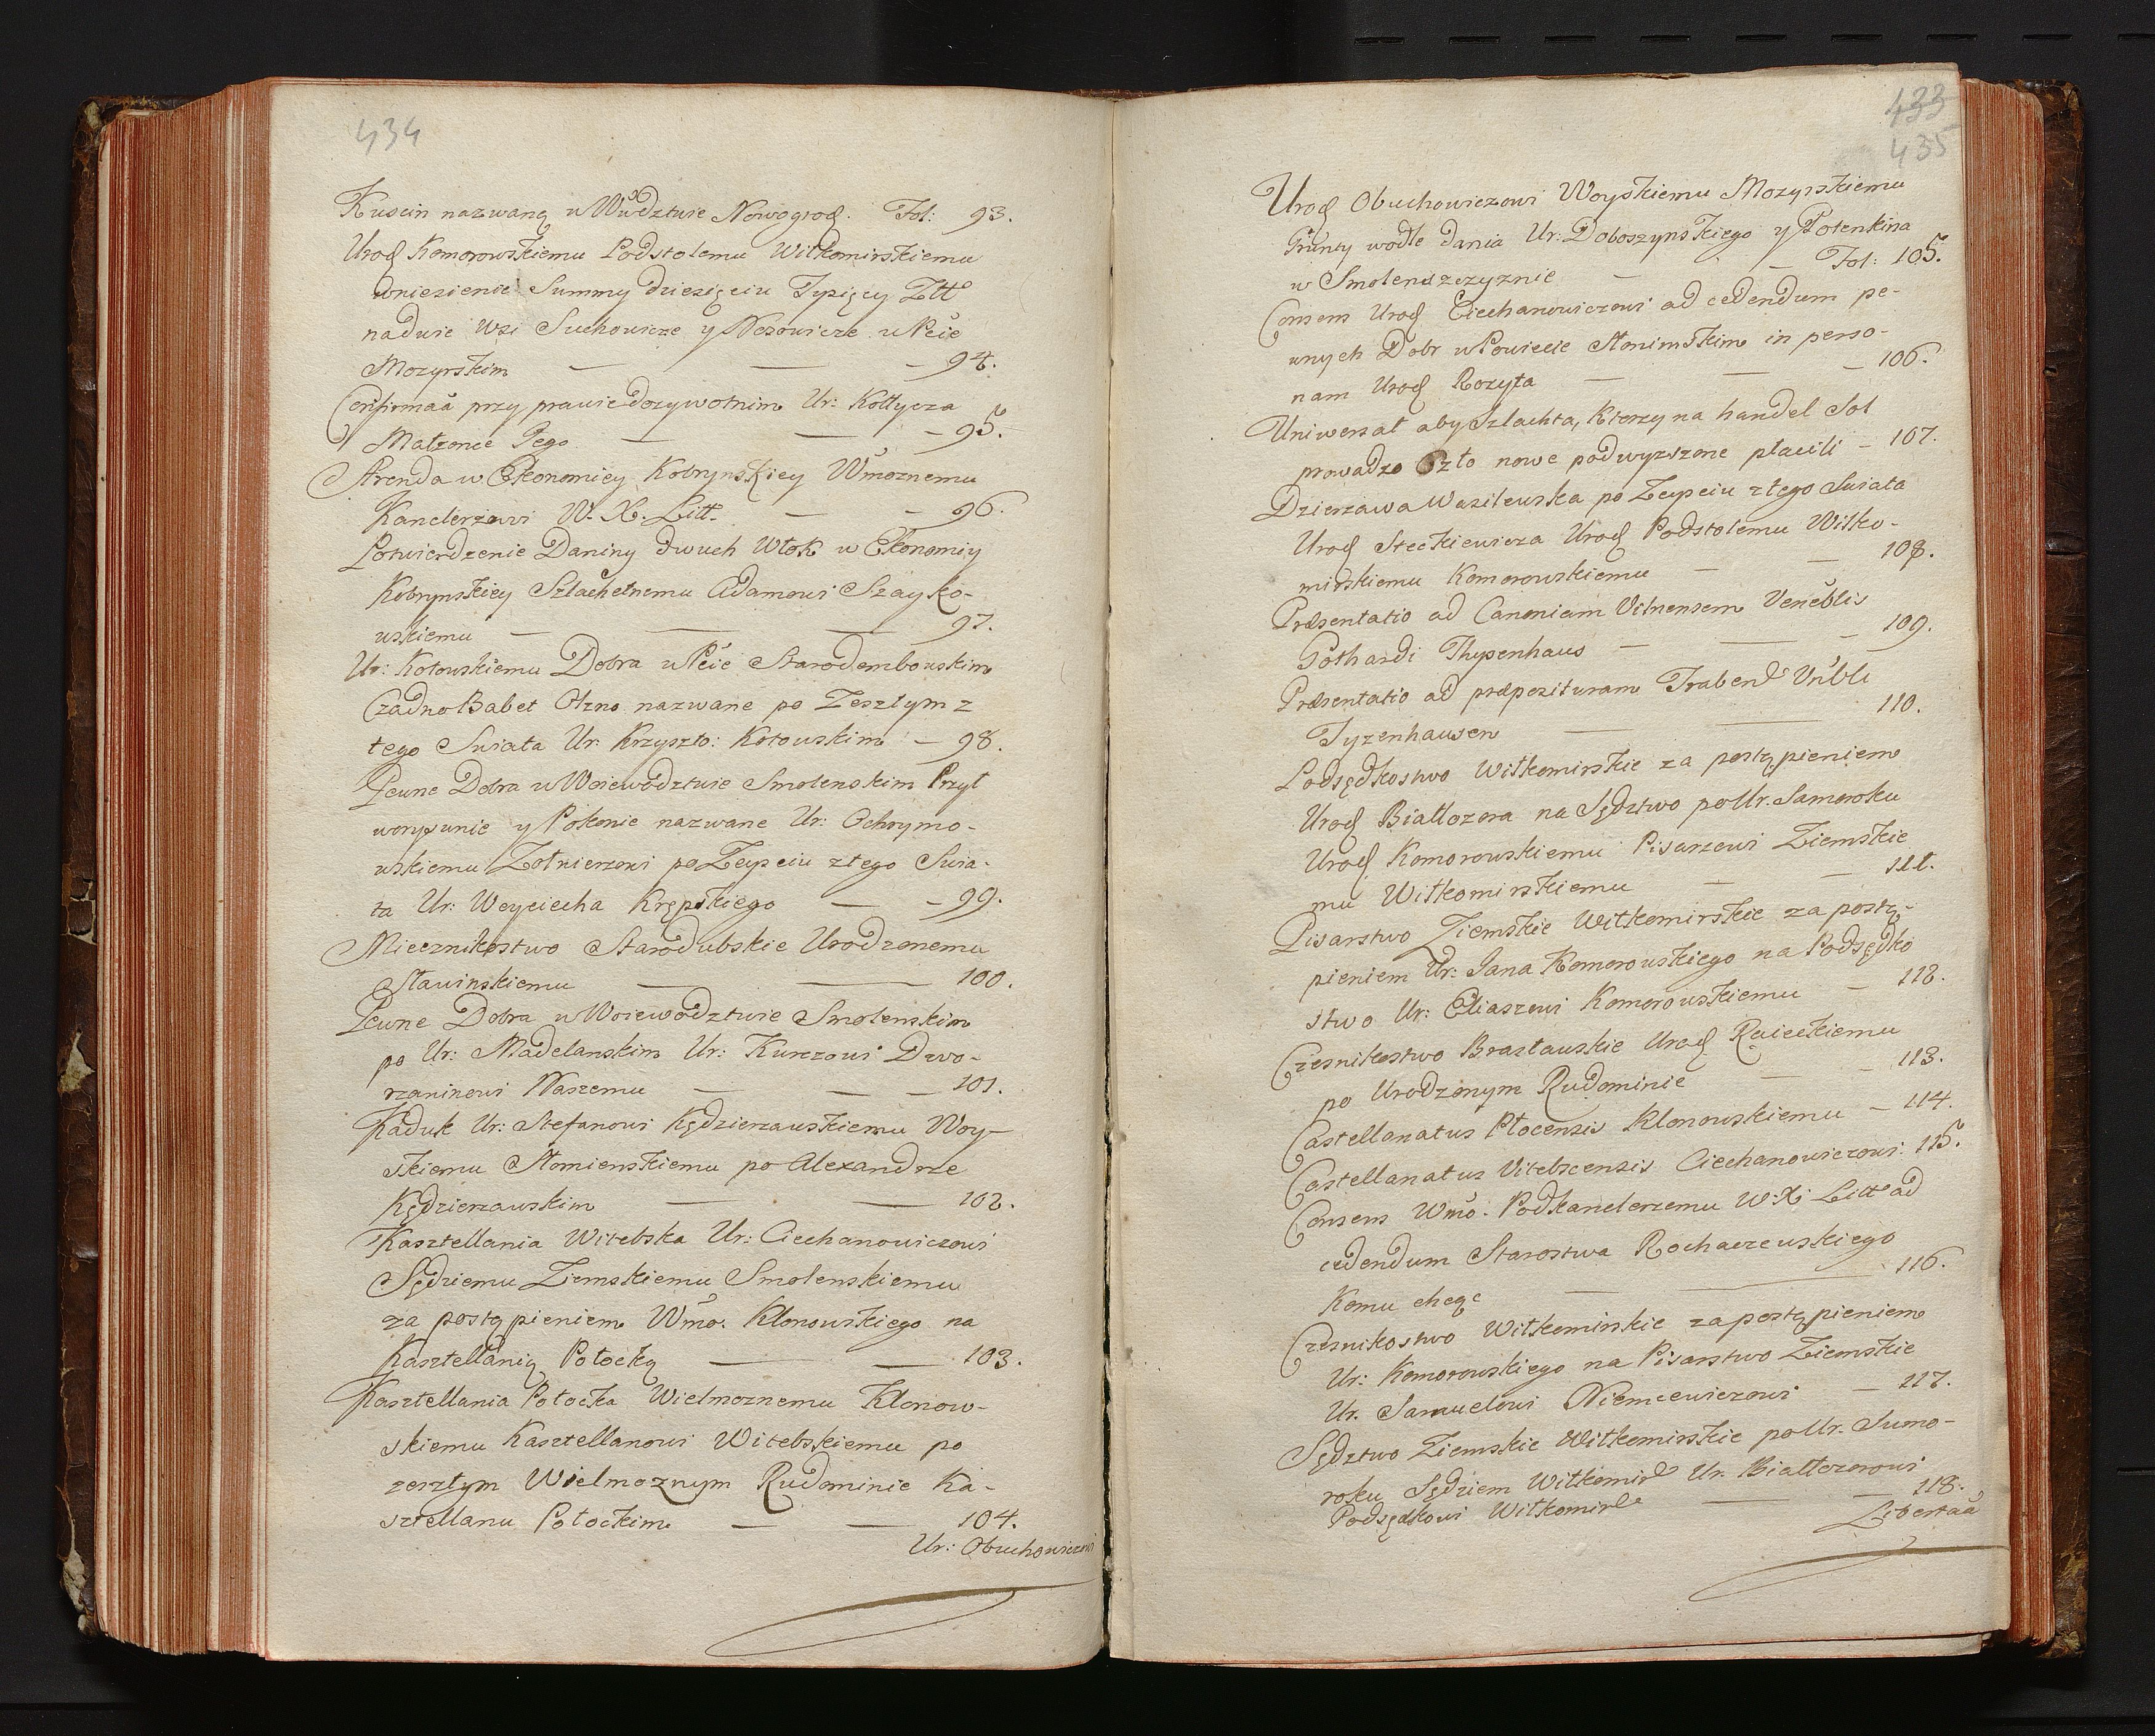 434
Kuscin nazwaną w Wwdztwie Nowogrod. Fol: 93.
Urod Komorowskiemu Podstolemu Wiłkomirskiemu
wniesienie Summy dziesięciu Tysięcy Złł
na dwie Wsi Suchowicze y Nosowicze w Pcie
Mozyrskim — — — 94.
Confirmaã przy prawie dozywotnim Ur: Kołłycza
Małzonce Iego — — — 95.
Arenda w Ekonomiey Kobrynskiey Wmoznemu
Kanclerzowi W. X. Litt. — — 96.
Potwierdzenie Daniny dwuch Włok w Ekonomiy
Kobrynskiey Szlachetnemu Adamowi Szayko-
wskiemu — — — 97.
Ur: Kotowskiemu Dobra w Pcie Starodembowskim
Czadno Babet Olzno nazwane po Zeszłym z
tego Swiata Ur: Krzyszto: Kotowskim — 98.
Pewne Dobra w Woiewodztwie Smolenskim Przyl
worysunie y Pokonie nazwane Ur: Ochrymo-
wskiemu Zołnierzowi po Zeysciu z tego Swia-
ta Ur: Woyciecha Krępskiego — — 99.
Miecznikostwo Starodubskie Urodzonemu
Sławinskiemu — — 100.
Pewne Dobra w Woiewodztwie Smolenskim
po Ur: Madelanskim Ur: Kurczowi Dwo-
rzaninowi Naszemu — — — 101.
Kaduk Ur: Stefanowi Kędzierzawskiemu Woy-
skiemu Słonienskiemu po Alexandrze
Kędzierzawskim — — 102.
Kasztellania Witebska Ur: Ciechanowiczowi
Sędziemu Ziemskiemu Smolenskiemu
za postąpieniem Wmo. Klonowskiego na
Kasztellanią Połocką — — 103.
Kasztellania Połocka Wielmoznemu Klonow-
skiemu Kasztellanowi Witebskiemu po
zeszłym Wielmoznym Rudominie Ka-
sztellanu Połockim — — 104.
Ur: Obuchowiczowi
433
435
Urod Obuchowiczowi Woyskiemu Mozyrskiemu
Grunty wodle dania Ur: Doboszynskiego y Potenkina
w Smolenszczyznie — — Fol: 105.
Consens Urod Ciechanowiczowi ad cedendum pe-
wnych Dobr w Powiecie Słonimskim in perso-
nam Urod Rozyta — — — 106.
Uniwersał aby Szlachta, Ktorzy na handel Sol
prowadzo Czło nowe podwyzszone płacili — 107.
Dzierzawa Wasilewska po Zeysciu z tego Swiata
Urod Steckiewicza Urod Podstolemu Wiłko-
mirskiemu Komorowskiemu — — 108.
Præsentatio ad Canoniam Vilnensem Venĕblis
Gothardi Thysenhaus — — — 109.
Præsentatio ad præpozituram Traben Vnbli
Tyzenhausen — — 110.
Podsędkostwo Wiłkomirskie za postąpieniem
Urod Białlozora na Sędztwo po Ur. Samoroku
Urod Komorowskiemu Pisarzowi Ziemskie
mu Wiłkomirskiemu — — 111.
Pisarstwo Ziemskie Wiłkomirskie za postą-
pieniem Ur: Jana Komorowskiego na Podsędko
stwo Ur: Eliaszowi Komorowskiemu — 112.
Czesnikostwo Brasławskie Urod Raieckiemu
po Urodzonym Rudominie — — 113.
Castellanatus Płocensis Klonowskiemu — 114.
Castellanatus Vitebscensis Ciechanowiczowi: 115.
Consens Wmo. Podkanclerzemu W: X: Litt ad
cedendum Starostwa Rochaczewskiego
Komu chcąc — — 116.
Czesnikostwo Wiłkomirskie za postąpieniem
Ur: Komorowskiego na Pisarstwo Ziemskie
Ur. Samuelowi Niemcewiczowi — 117.
Sędztwo Ziemskie Wiłkomirskie po Ur. Sumo-
roku Sędziem Wiłkomir Ur. Białłozorowi
Podsędkowi Wiłkomirs — — 118.
Libertaã